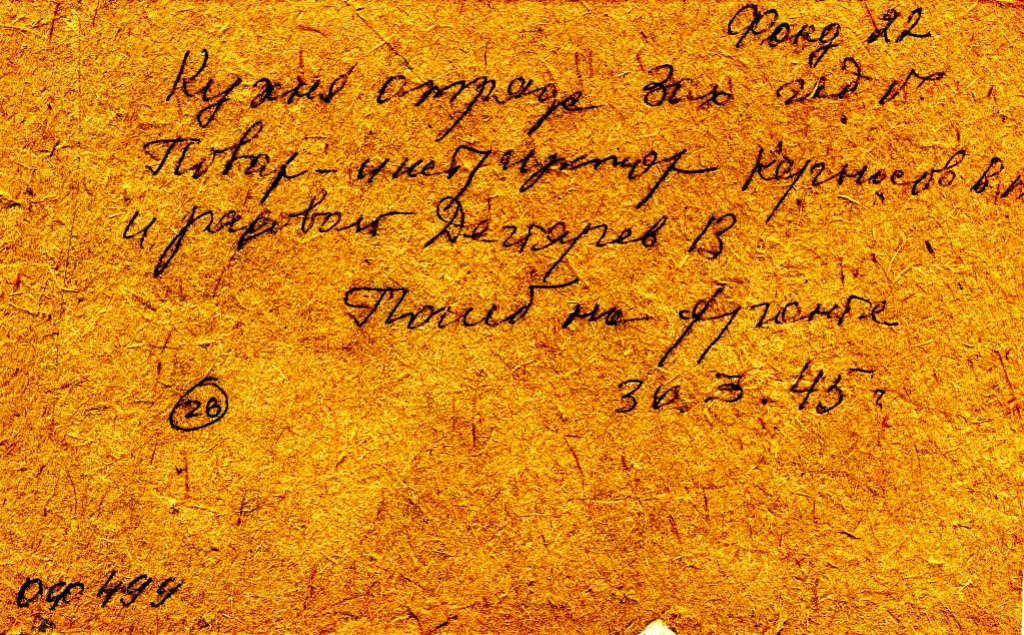 Фонд 22
Кухня отряда Зах
Повар-инструктор Керносов в.
и рядовой Дегтярев В
Погиб на фронте
30.3.45 г
28
ОФ 499